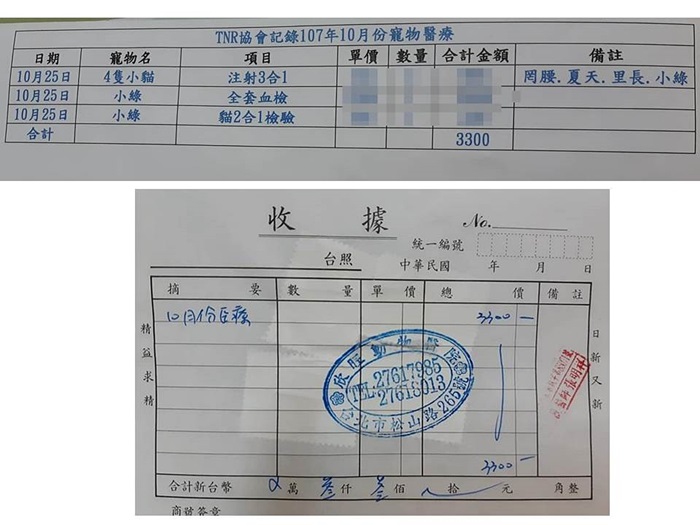 TNR協會記錄107年10月份寵物醫療
日期 寵物名 項目 單價 數量 合計金額 備註
10月25日 4隻小貓 注射3合1 罔腰.夏天.里長.小綠
10月25日 小綠 全套血檢
10月25日 小綠 貓2合1檢驗
合計 3300
收 據 No.
統一編號
台照 中華民國 年 月 日
摘 要 數 量 單 價 總 價 備 註
10月份医療 3300一
精益求精
日新又新
欣旺動物醫院
TEL:27617985
27618013
台北市松山路265號
3300一
合計新台幣 萬 叁仟 叁佰 拾 元 角整
商號簽章